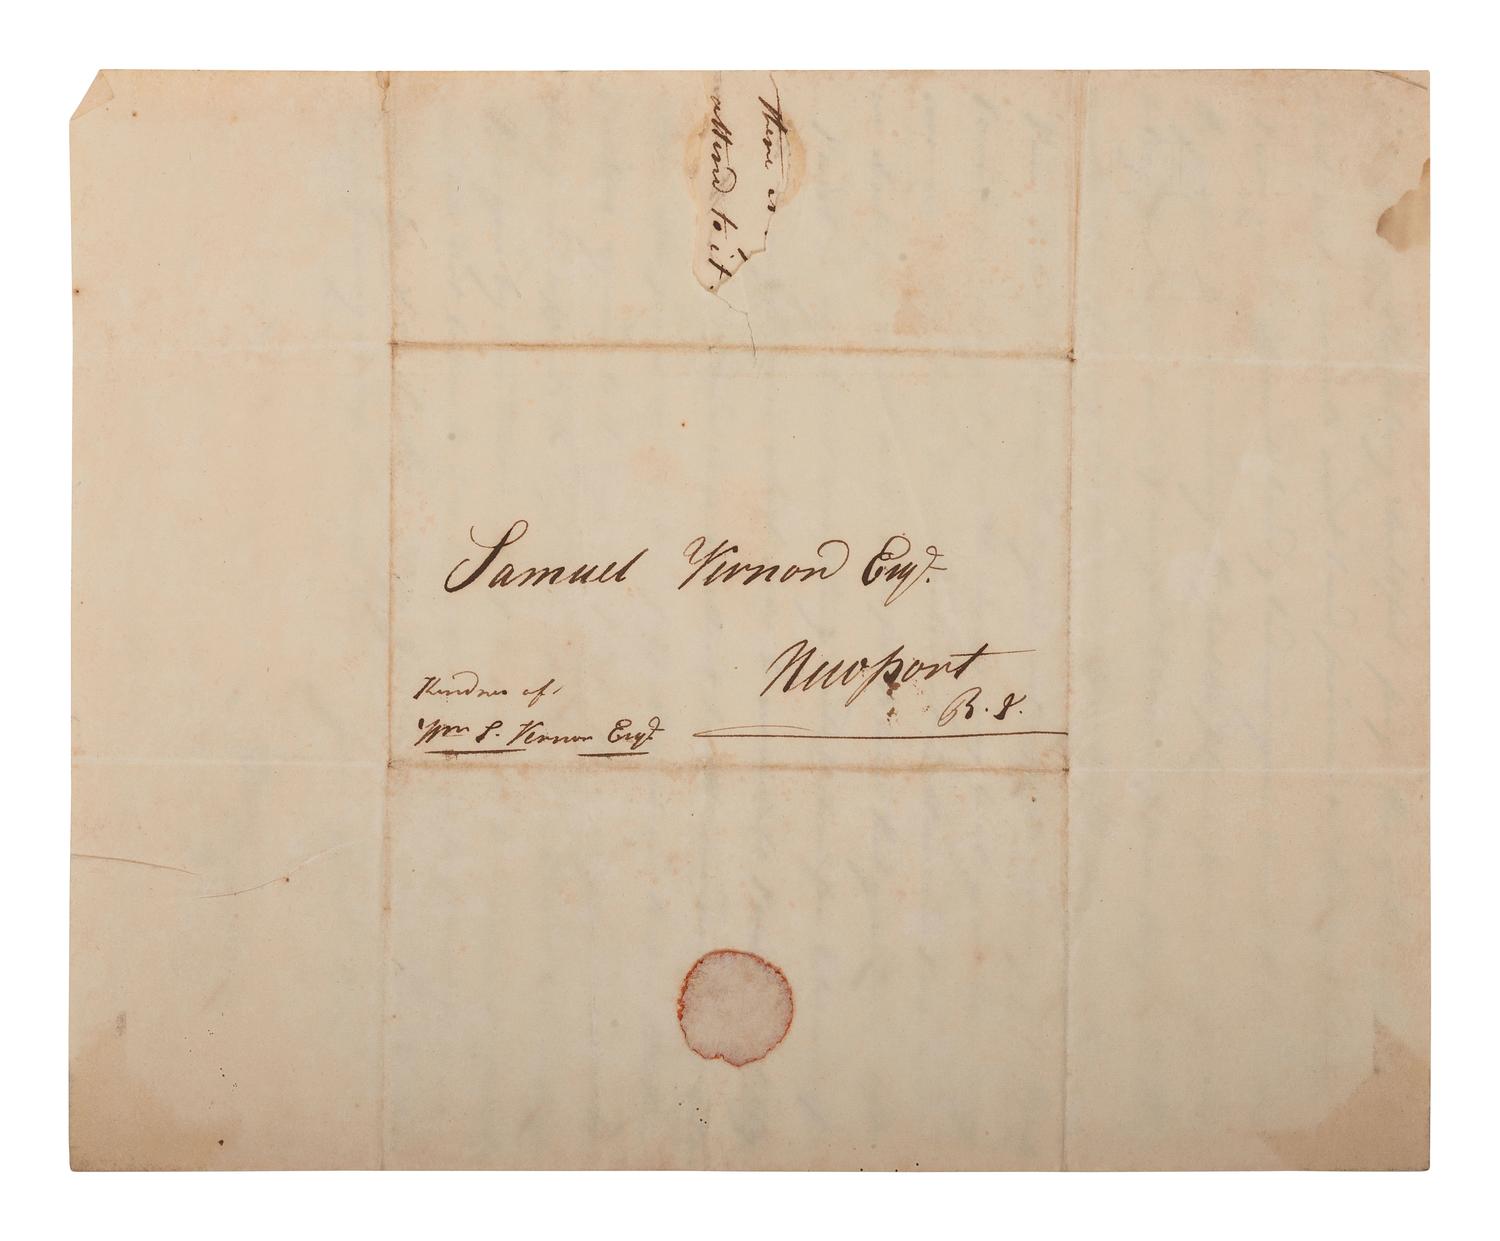 there is
attend to it.
Samuel Vernon Esqr.
Newport
R. I.
Kindness of
Wm S. Vernon Esqr